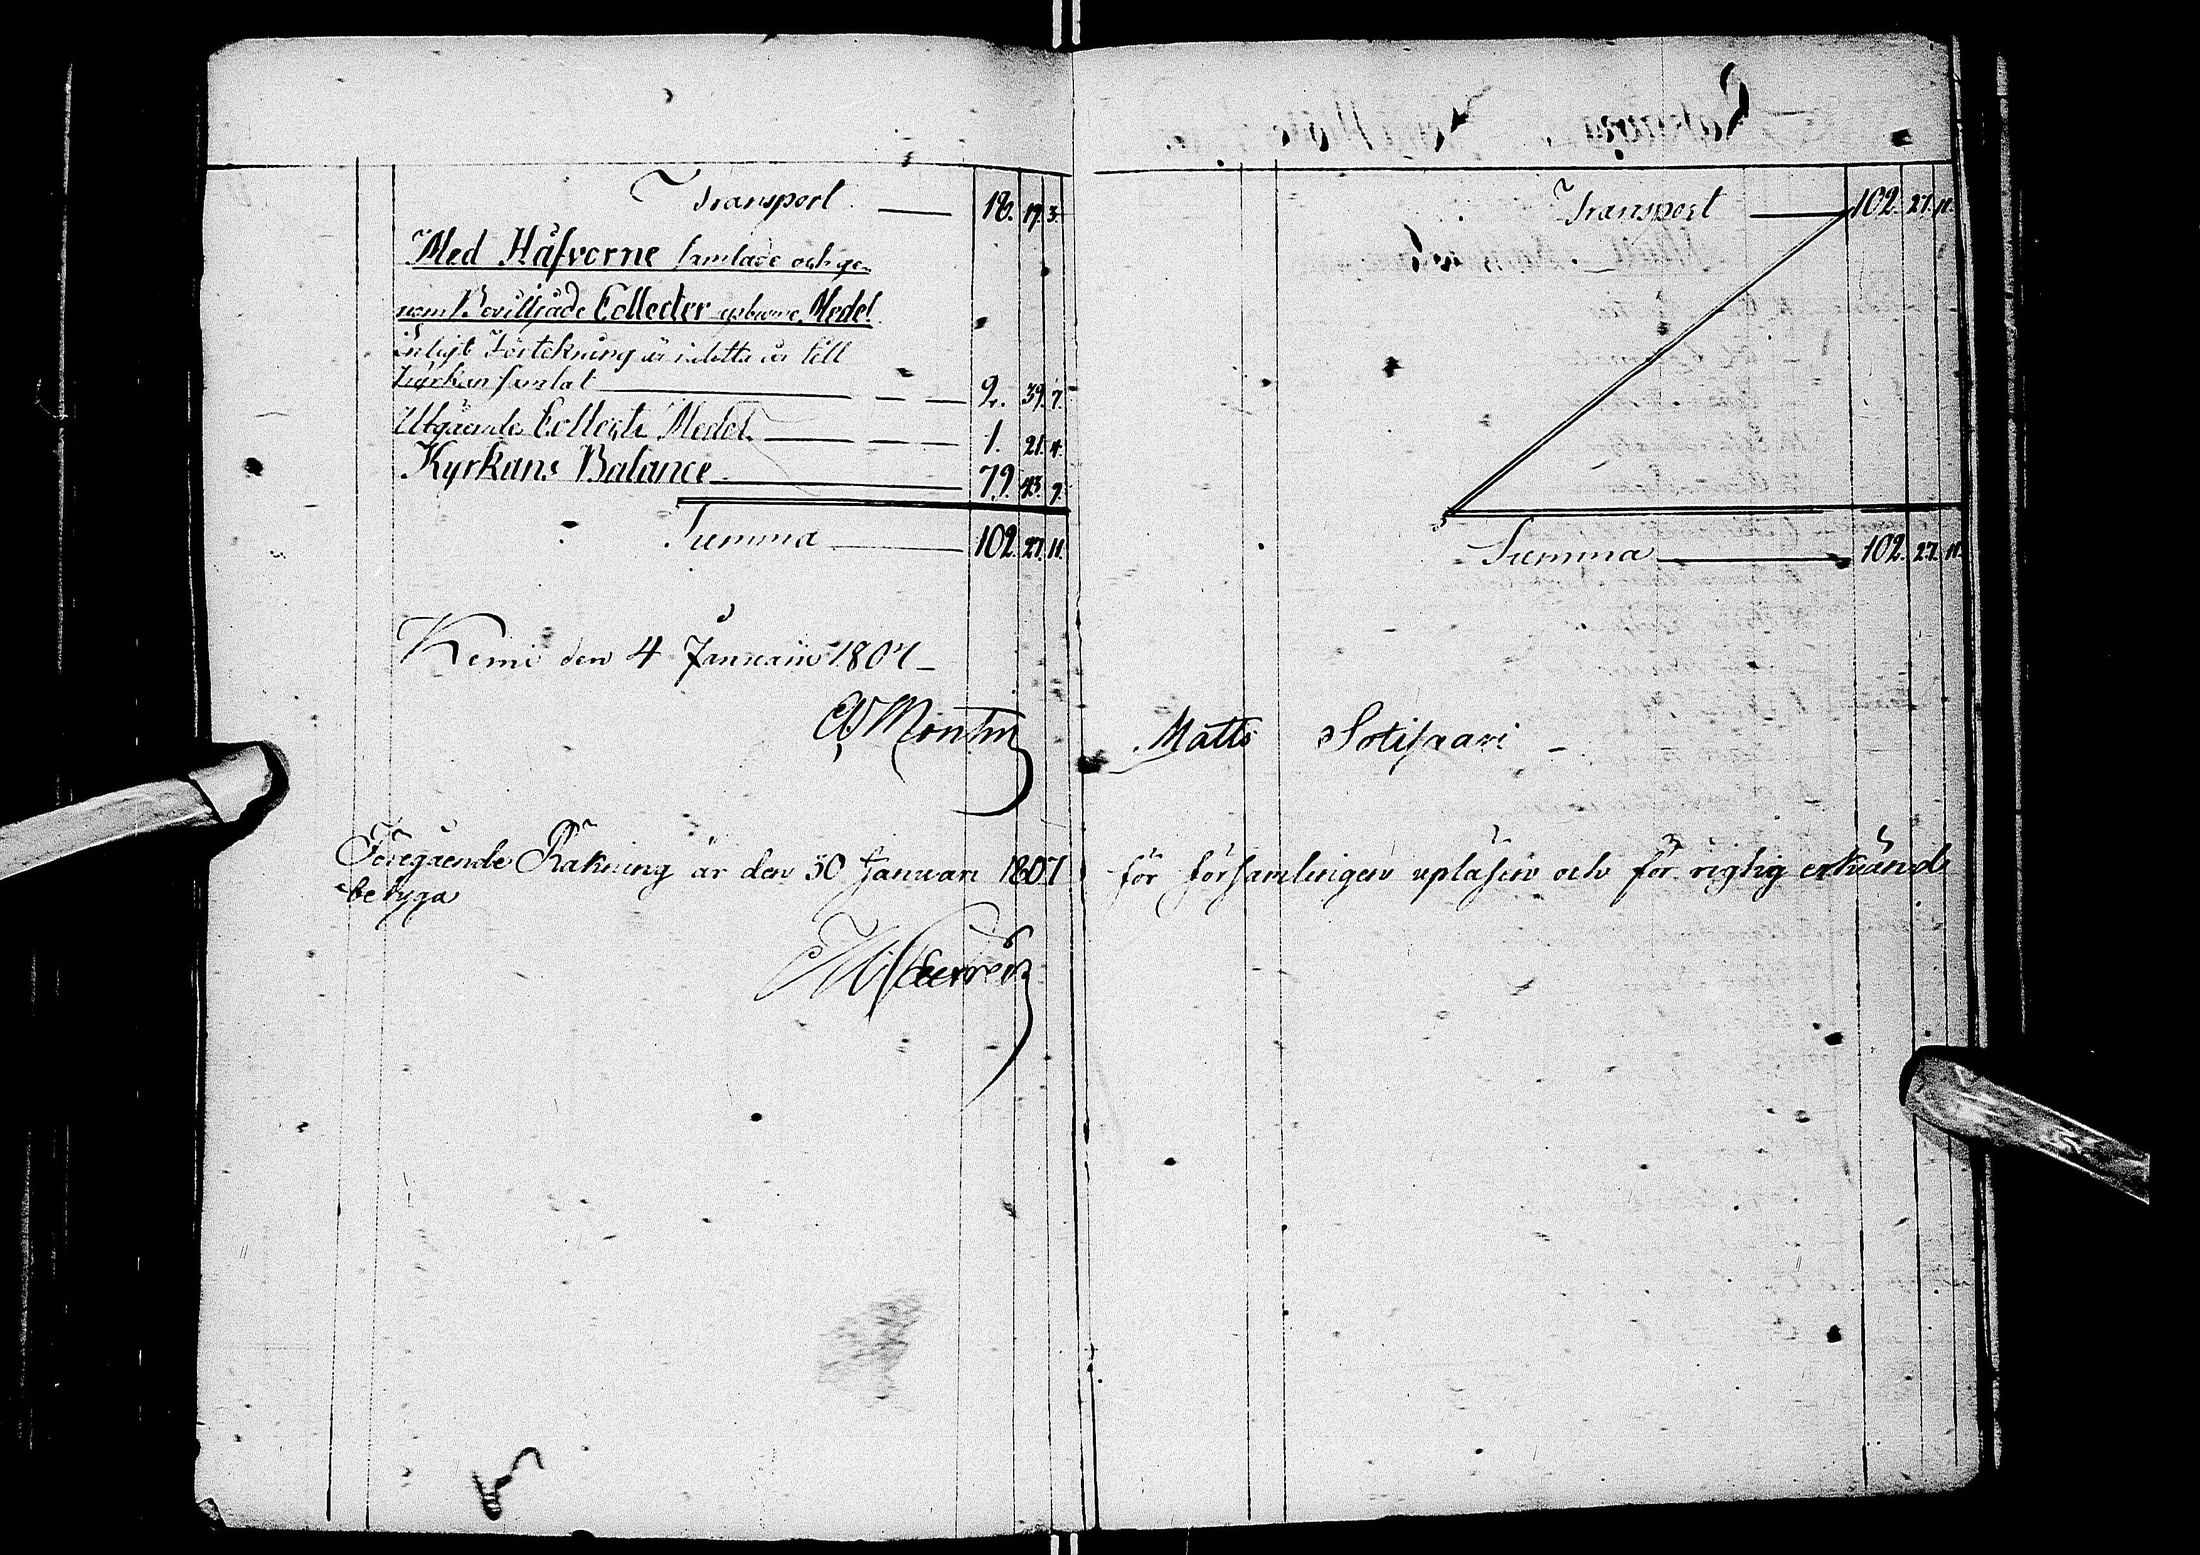 Transport 18. 19. 3.
Med Håfvorne samlade och ge-
nom Beviljade Collecter Medel
Enligt Förtekning är i detta år till
kyrkan samlat 2. 39. 7.
Utgående Collect Medel 1. 21. 4.
Kyrkans Balance 79. 43. 9.
Summa 102. 27. 11.
Kemi den 4 Januarii 1807
Montin
Transport 102. 27. 11.
Summa 102. 27. 11.
Matts Sotisaari
Föregående Räkning är den 30 Januari 1807 för församlingen upläsen och för rigtig erkiänd
betyga